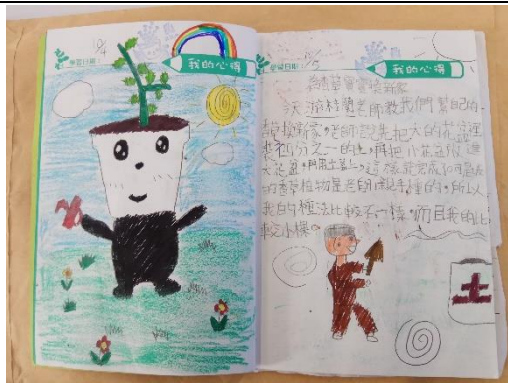 學習日期:
10/4
我的心得
學習日期:
10/5
我的心得
為香草寶寶換新家
今天游梓蘭老師教我們幫自己的
香草換新家,老師說先把大的花盆裡
裝和分之一的土,再把小花盆放進
大花盆,再用土蓋上,這樣就完成了可是我
的香草植物是老師親手種的,所以
我的種法比較不一樣,而且我的比
較小棵。
土